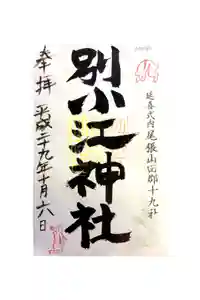 延喜式内尾張山田郡十九社
別小江神社
奉拝 平成二十九年十月六日